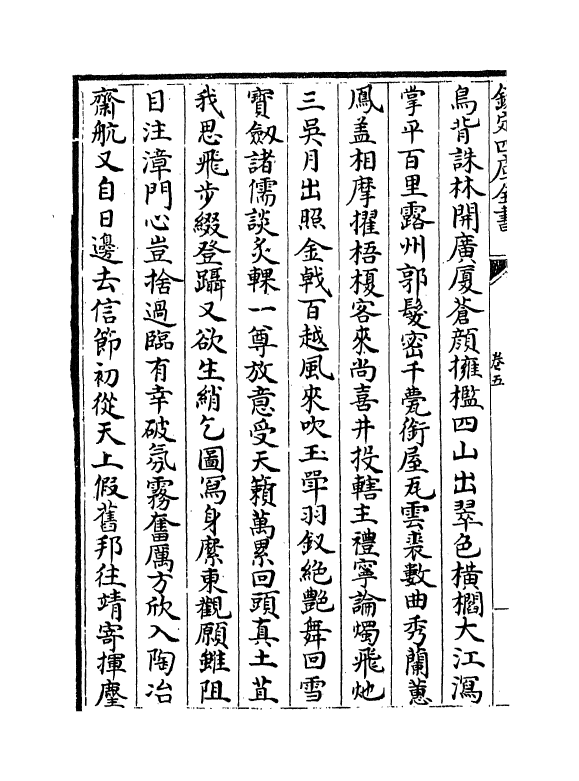 欽定四庫全書
卷五
鳥背誅林開廣厦蒼顔擁檻四山出翠色橫櫩大江瀉
掌平百里露州郭髮密千甍銜屋瓦雲裘數曲秀蘭蕙
鳳盖相摩擢梧檟客來尚喜井投轄主禮寧論燭飛灺
三吳月出照金戟百越風來吹玉斝羽釵絶艶舞回雪
寶劔諸儒談炙輠一尊放意受天籟萬累回頭真土苴
我思飛步綴登躡又欲生綃乞圖寫身縻東觀願雖阻
目注漳門心豈捨過臨有幸破氛霧奮厲方欣入陶冶
齋航又自日邊去信節初從天上假舊邦往靖寄揮麈